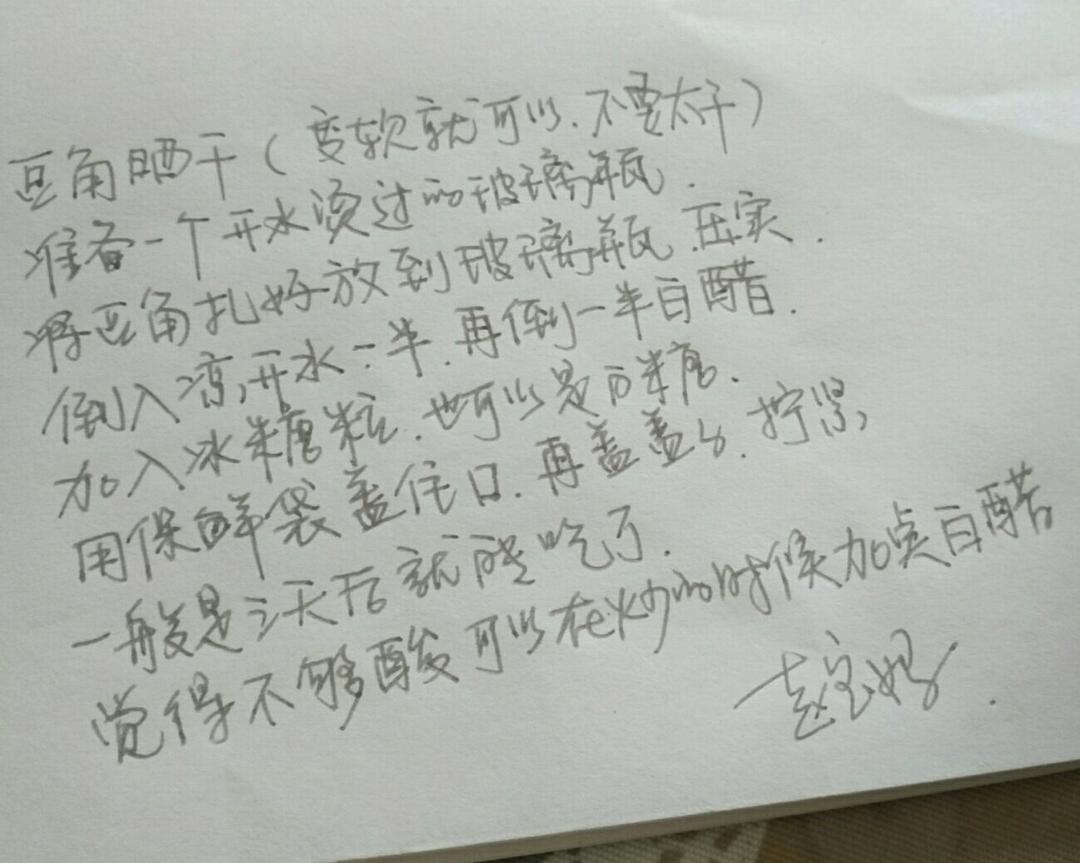 豆角晒干(变软就可以.不要太干)
准备一个开水烫过的玻璃瓶.
将豆角扎好放到玻璃瓶.压实.
倒入凉开水一半.再倒一半白醋.
加入冰糖粒.也可以是白糖.
用保鲜袋盖住口.再盖盖子.拧紧,
一般是三天后就能吃了.
觉得不够酸可以在炒的时候加点白醋